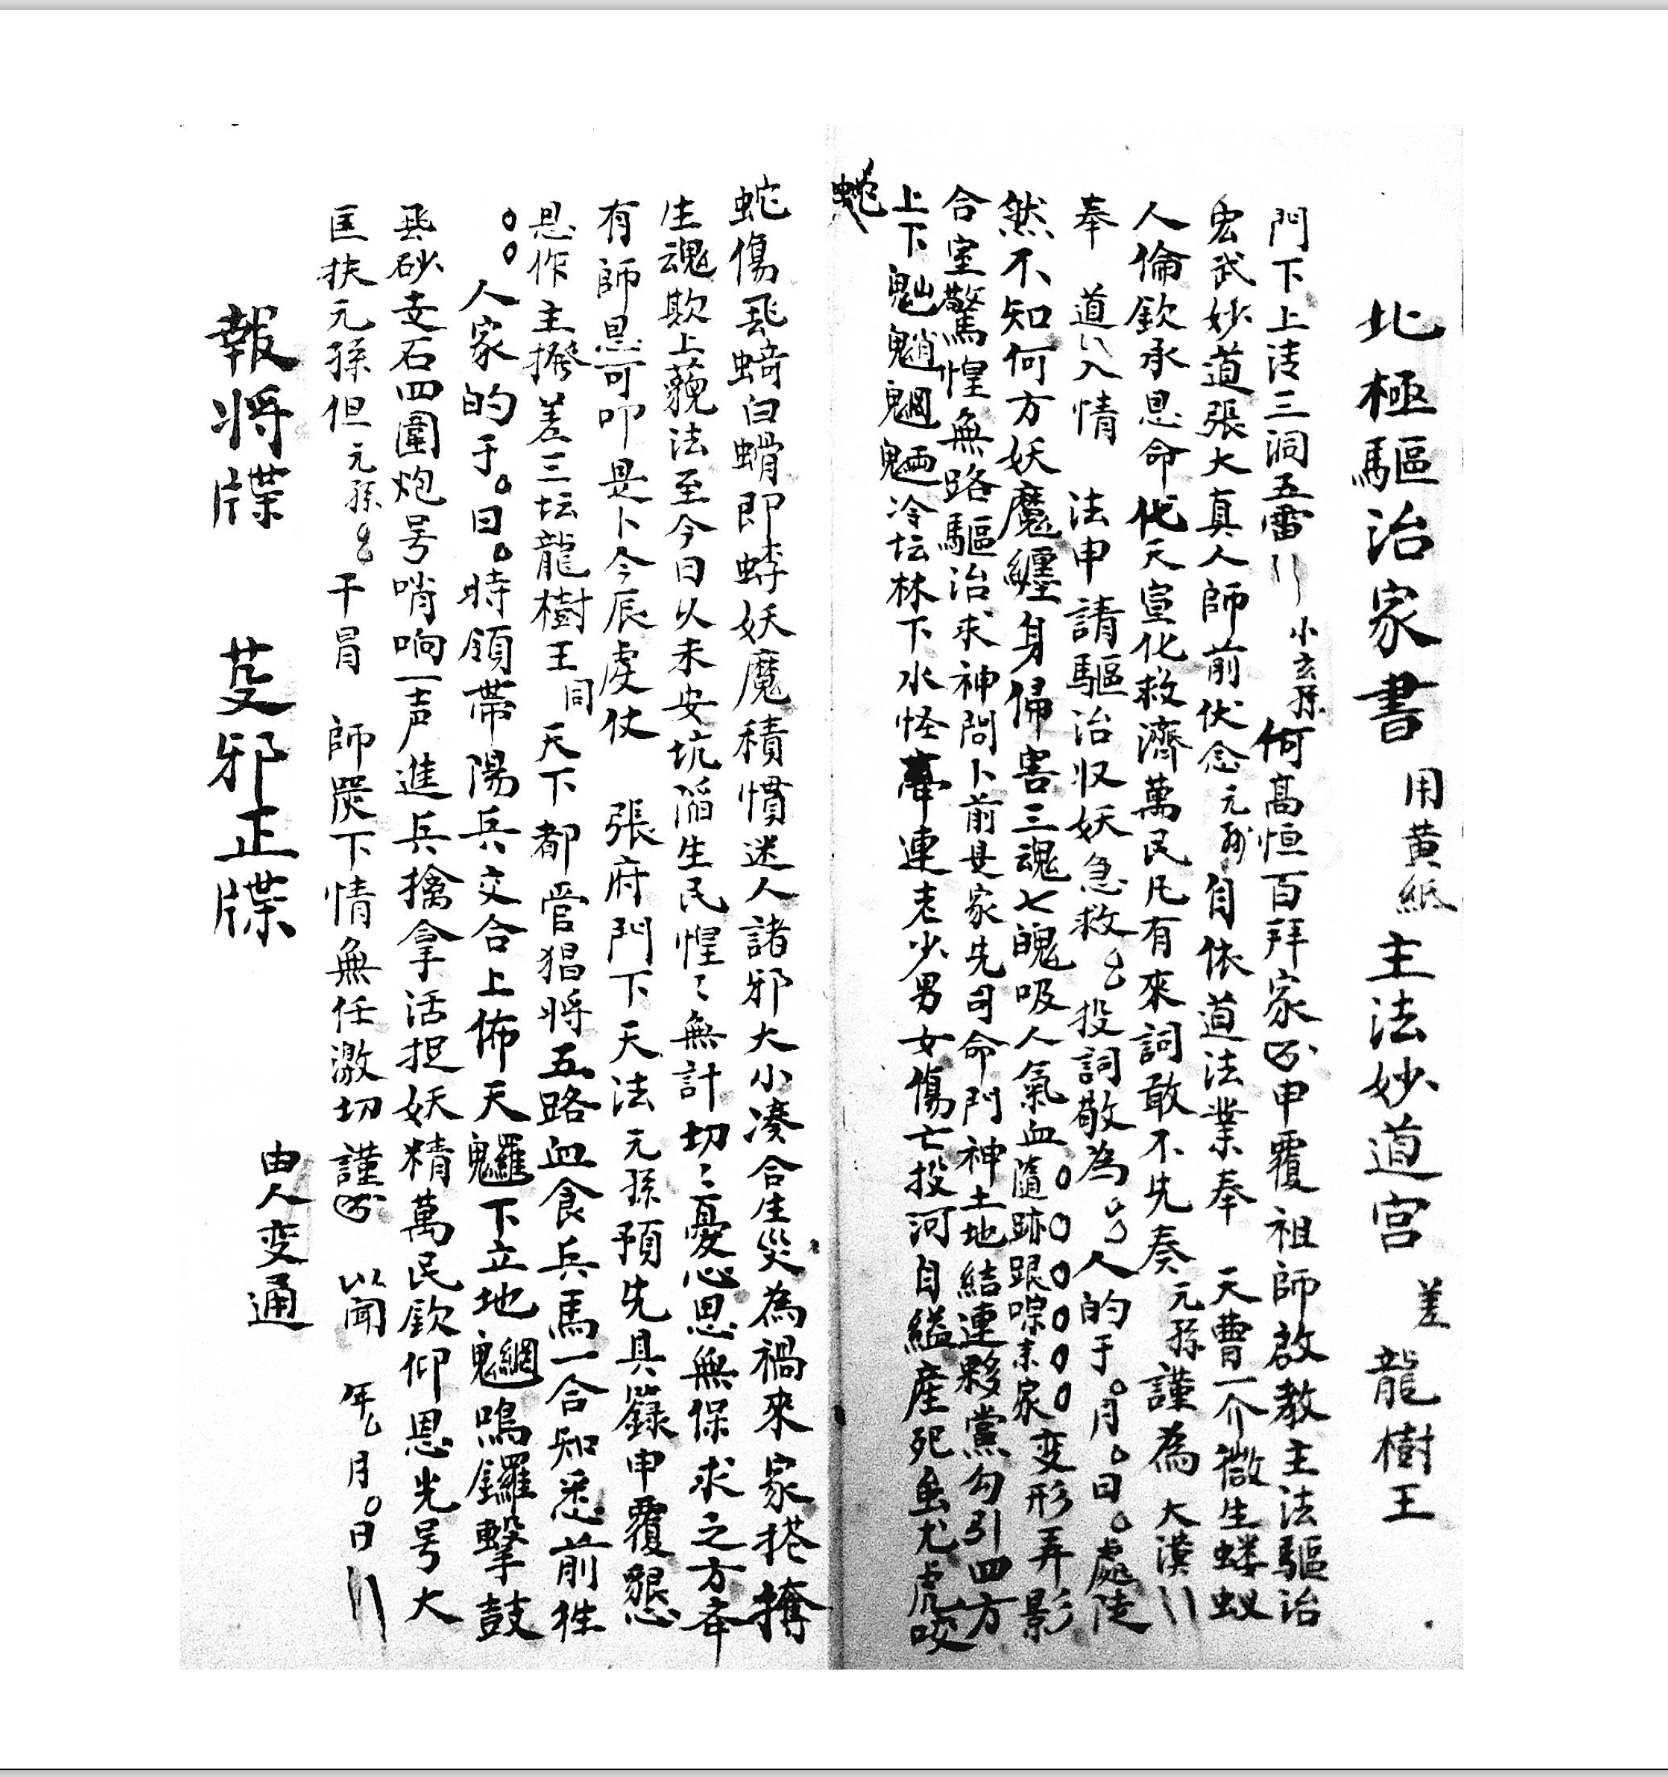 北極驅治家書 用黃紙 主法妙道宫 差 龍樹王
門下上清三洞五雷 小玄孫何高恒百拜家 申覆祖師啟教主法驅治
宏武妙道張大真人師前伏念元孫自依道法業奉 天曹一介微生螻蟻
人倫欽承恩命代天宣化救濟萬民凡有來詞敢不先奏 元孫謹為 大漢
奉 道 入情 法申請驅治収妖急救 投詞敬為 人的于。月。日。處陡
然不知何方妖魔纏身傷害三魂七魄吸人氣血。。。。。。
合室驚惶無路驅治求神問卜前是家先司命門神土地結連夥黨勾引四方
隨跡跟㗰未家变形弄影
上下魈魍魎冷坛林下水怪牽連老少男女傷亡投河自縊産死虫尤虎咬
蛇
蛇傷飛蜞白螖即蛴妖魔積慣迷人諸邪大小凑合生災為禍來家搭攙
生魂欺上藐法至今日久未安坑滔生民惶〻無計切〻憂心思無保求之方幸
有師恩可叩是卜今辰虔仗 張府門下天法元孫預先具籙申覆懇
恩作主撥差三坛龍樹王同天下都管猖將五路血食兵馬一合知悉前徃
。。人家的于。日。時領帶陽兵交合上佈天羅下立地網鳴鑼擊鼓
飛砂走石四圍炮号哨响一声進兵擒拿活捉妖精萬民欽仰恩光号大
匡扶元孫但元孫 干冒 師嚴下情無任激切謹 以聞 年 月。日
報將牒 芟邪正牒 由人变通